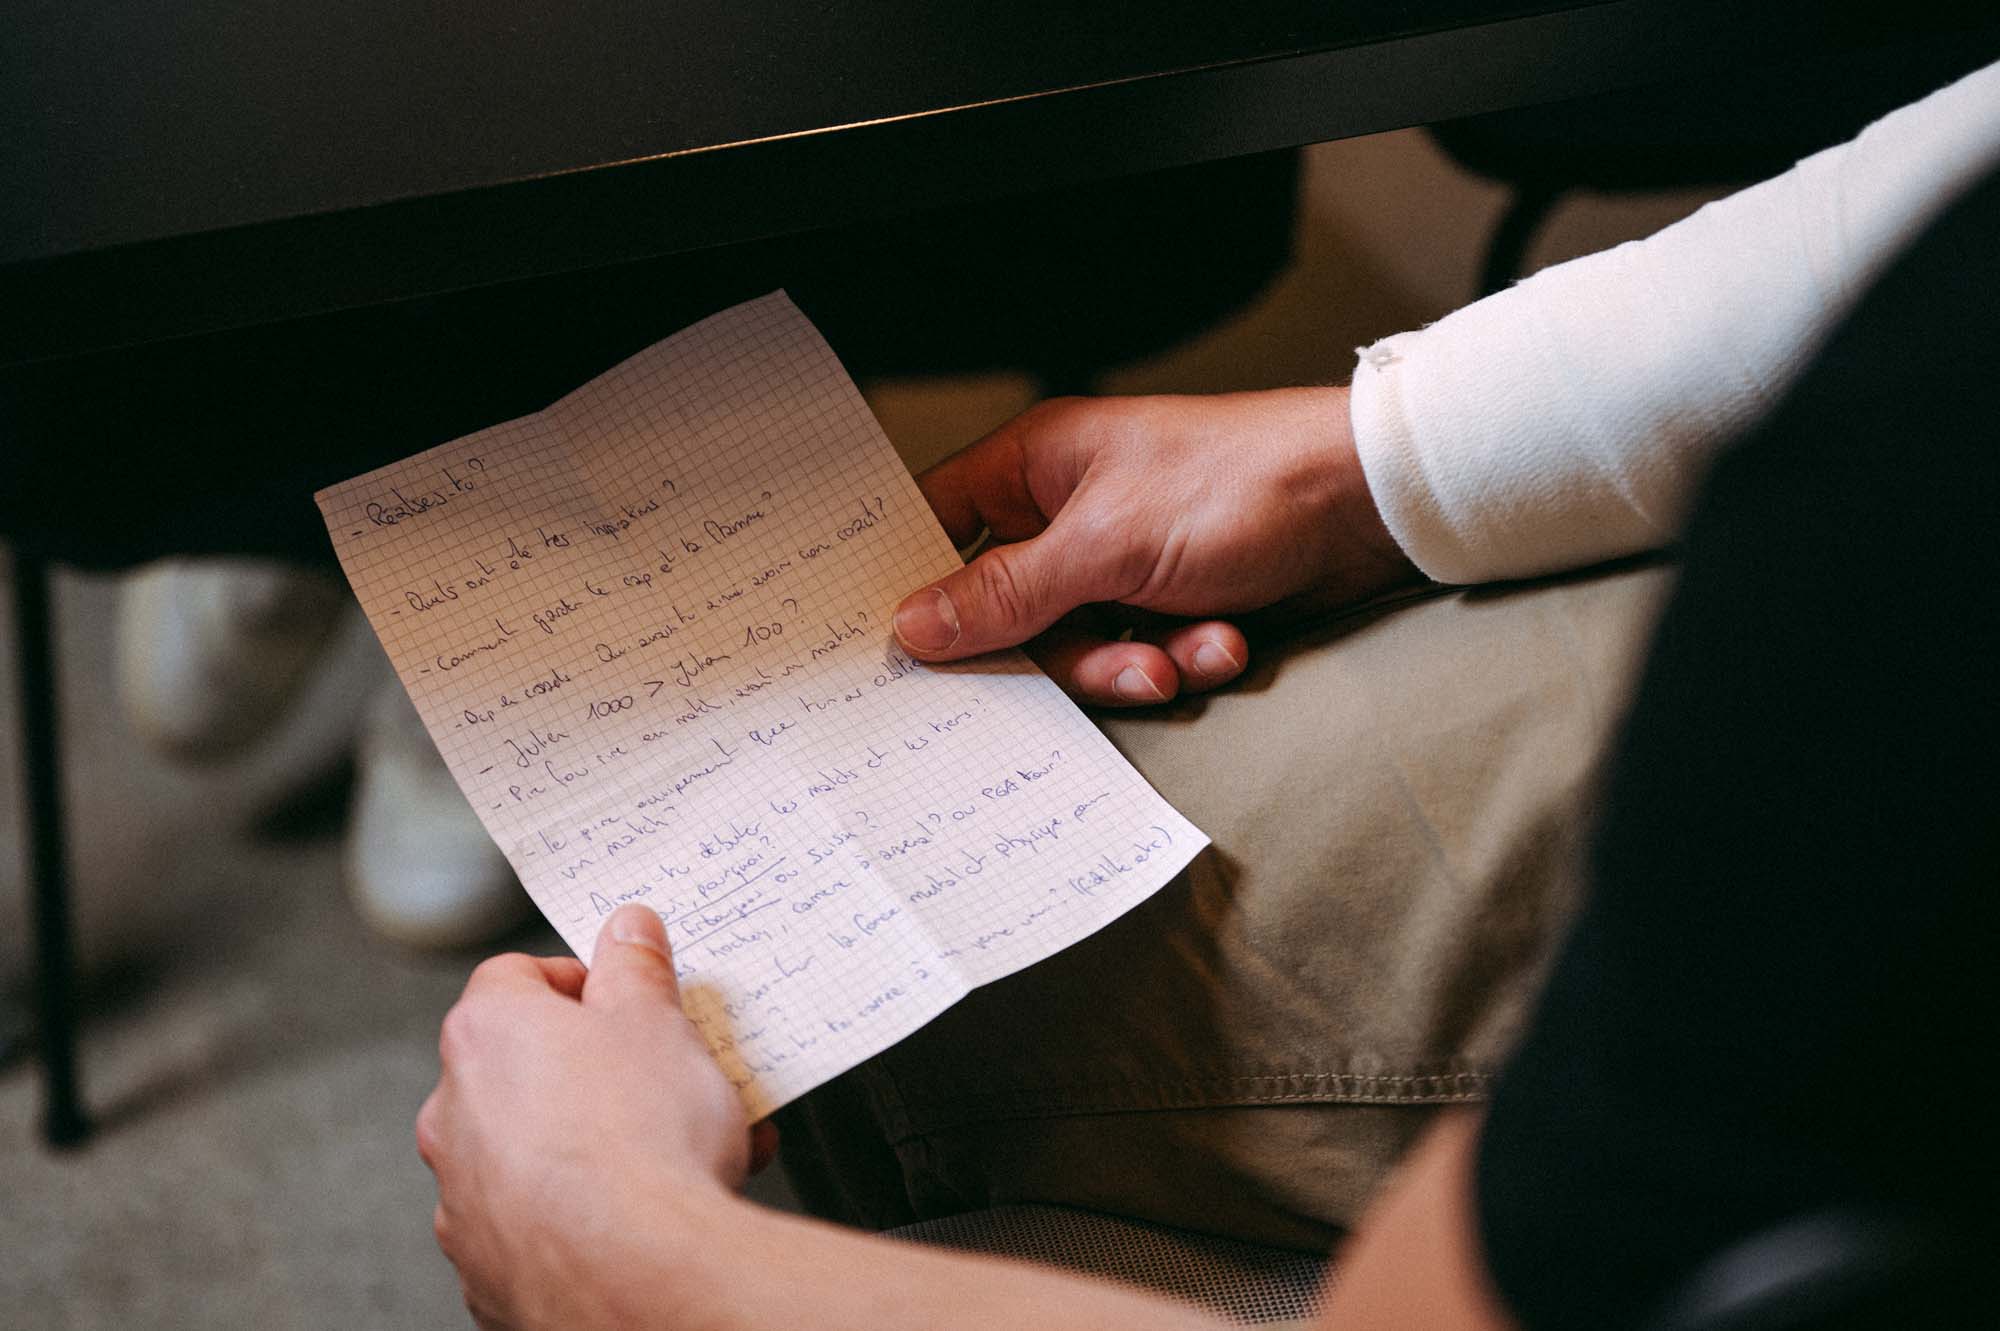 - Réalises-tu ?
- Quels ont été tes inspirations ?
- Comment garder le cap et la flamme ?
- Dep les coachs... Qui aurais-tu aimé avoir con coach ?
- Julien 1000 > Julien 100 ?
- Pire fou rire en match, avant un match ?
- le pire équipement que tu as oublié
un match ?
- Aimes-tu débuter les matchs et les tiers ?
oui, pourquoi ?
- Fribourgeois ou Suisse ?
hockey, carrière à arsenal ? ou PGA tour ?
puises-tu la force mental et physique pour
?
-tu ta carrière à un jeune (fidélité etc)